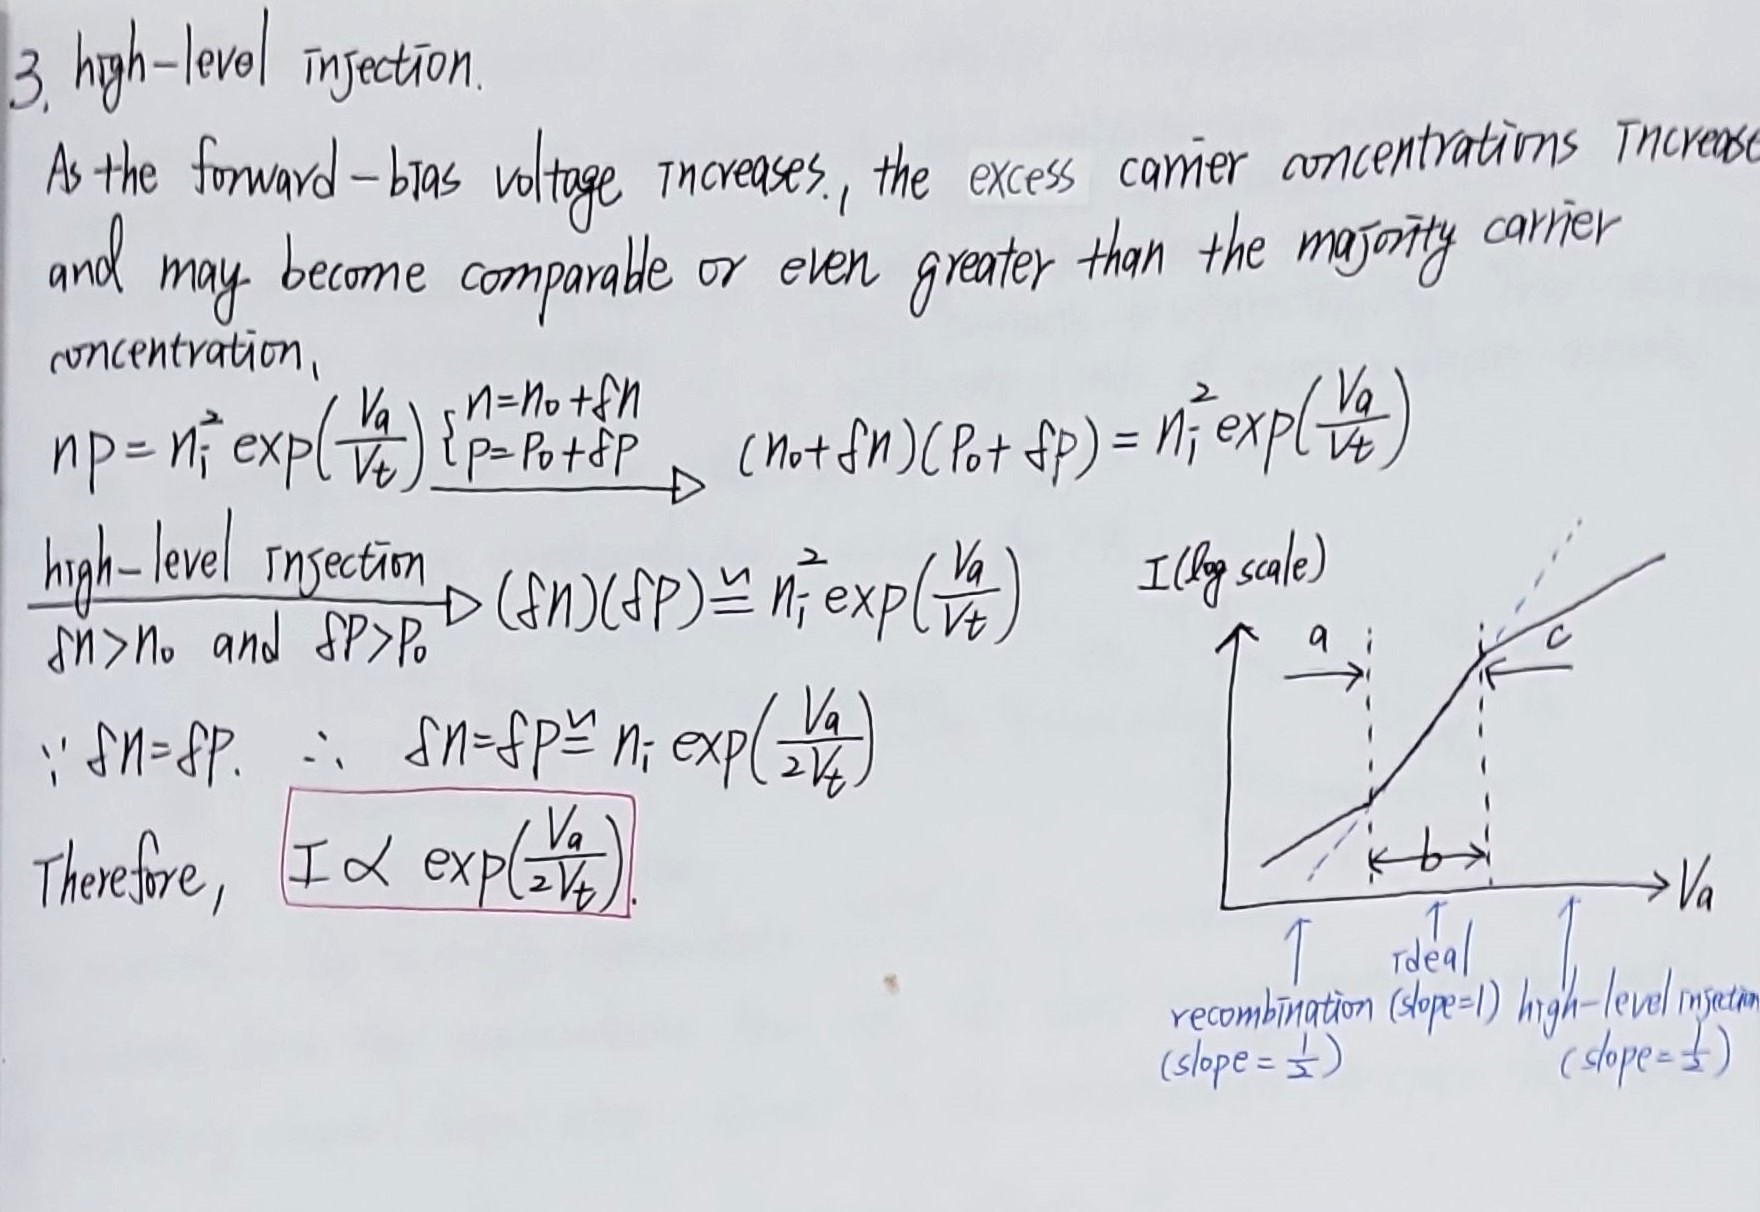 3. high-level injection.
As the forward-bias voltage increases., the excess carrier concentrations increase
and may become comparable or even greater than the majority carrier
concentration,
np = nᵢ² exp(Va/Vt) { n=n₀+δn p=p₀+δp → (n₀+δn)(p₀+δp) = nᵢ² exp(Va/Vt)
high-level injection δn>n₀ and δp>p₀ → (δn)(δp) ≅ nᵢ² exp(Va/Vt)
∵ δn=δp. ∴ δn=δp ≅ nᵢ exp(Va/2Vt)
Therefore, I ∝ exp(Va/2Vt).
I (log scale)
a
c
b
Va
recombination (slope = 1/2)
ideal (slope=1)
high-level injection (slope = 1/2)